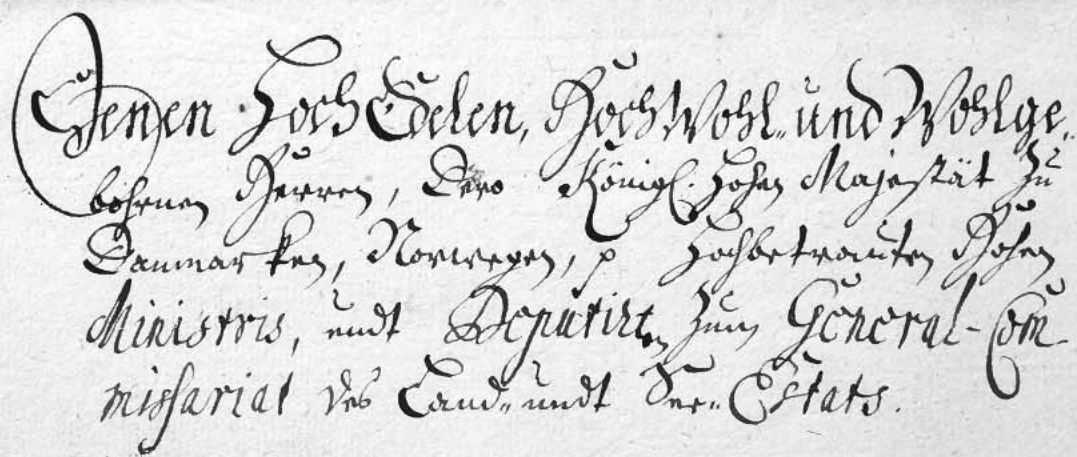 Denen HochEdelen, HochWohl- und Wohlge-
bohrnen Herren, Dero Königl. Hohen Majestät zu
Dannemarken, Norwegen, p Hochbetrauten Hohen
Ministris, undt Deputirten zum General-Com-
missariat des Land- undt See-Estats.